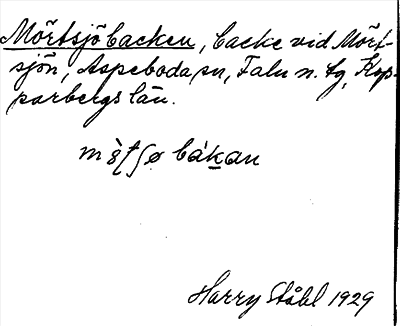 Mörtsjöbacken, backe vid Mört-
sjön, Aspeboda sn, Falu n. tg, Kop-
parbergs län.
bákan
Harry Ståhl 1929